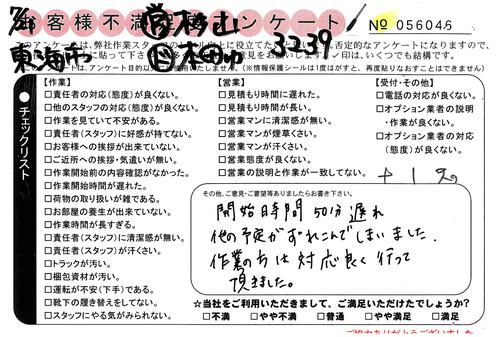 お客様不満足度アンケート
№ 056046
7/28
東海市
営 杉山
3339
このアンケートは、弊社作業スタッフ
【作業】
□責任者の対応（態度）が良くない。
□他のスタッフの対応（態度）が良くない。
□作業を見ていて不安がある。
□責任者（スタッフ）に好感が持てない。
□お客様への挨拶が出来ていない。
□ご近所への挨拶・気遣いが無い。
□作業開始前の内容確認がなかった。
□作業開始時間が遅れた。
□荷物の取り扱いが雑である。
□お部屋の養生が出来ていない。
□作業時間が長すぎる。
□責任者（スタッフ）に清潔感が無い。
□責任者（スタッフ）が汗くさい。
□トラックが汚い。
□梱包資材が汚い。
□運転が不安（下手）である。
□靴下の履き替えをしてない。
□スタッフにやる気がみられない。
【営業】
□見積もり時間に遅れた。
□見積もり時間が長い。
□営業マンに清潔感が無い。
□営業マンが煙草くさい。
□営業マンが汗くさい。
□営業態度が良くない。
□営業の説明と作業が一致してない。
【受付・その他】
□電話の対応が良くない。
□オプション業者の説明
・作業が良くない。
□オプション業者の対応
（態度）が良くない。
チェックリスト
その他、ご意見・ご要望等ありましたらお書き下さい。
開始時間 50分遅れ
他の予定がずれこんでしまいました。
作業の方は対応良く行って
頂きました。
☆当社をご利用いただきまして、ご満足いただけたでしょうか？
□不満 □やや不満 □普通 □やや満足 □満足
ご協力ありがとうございました